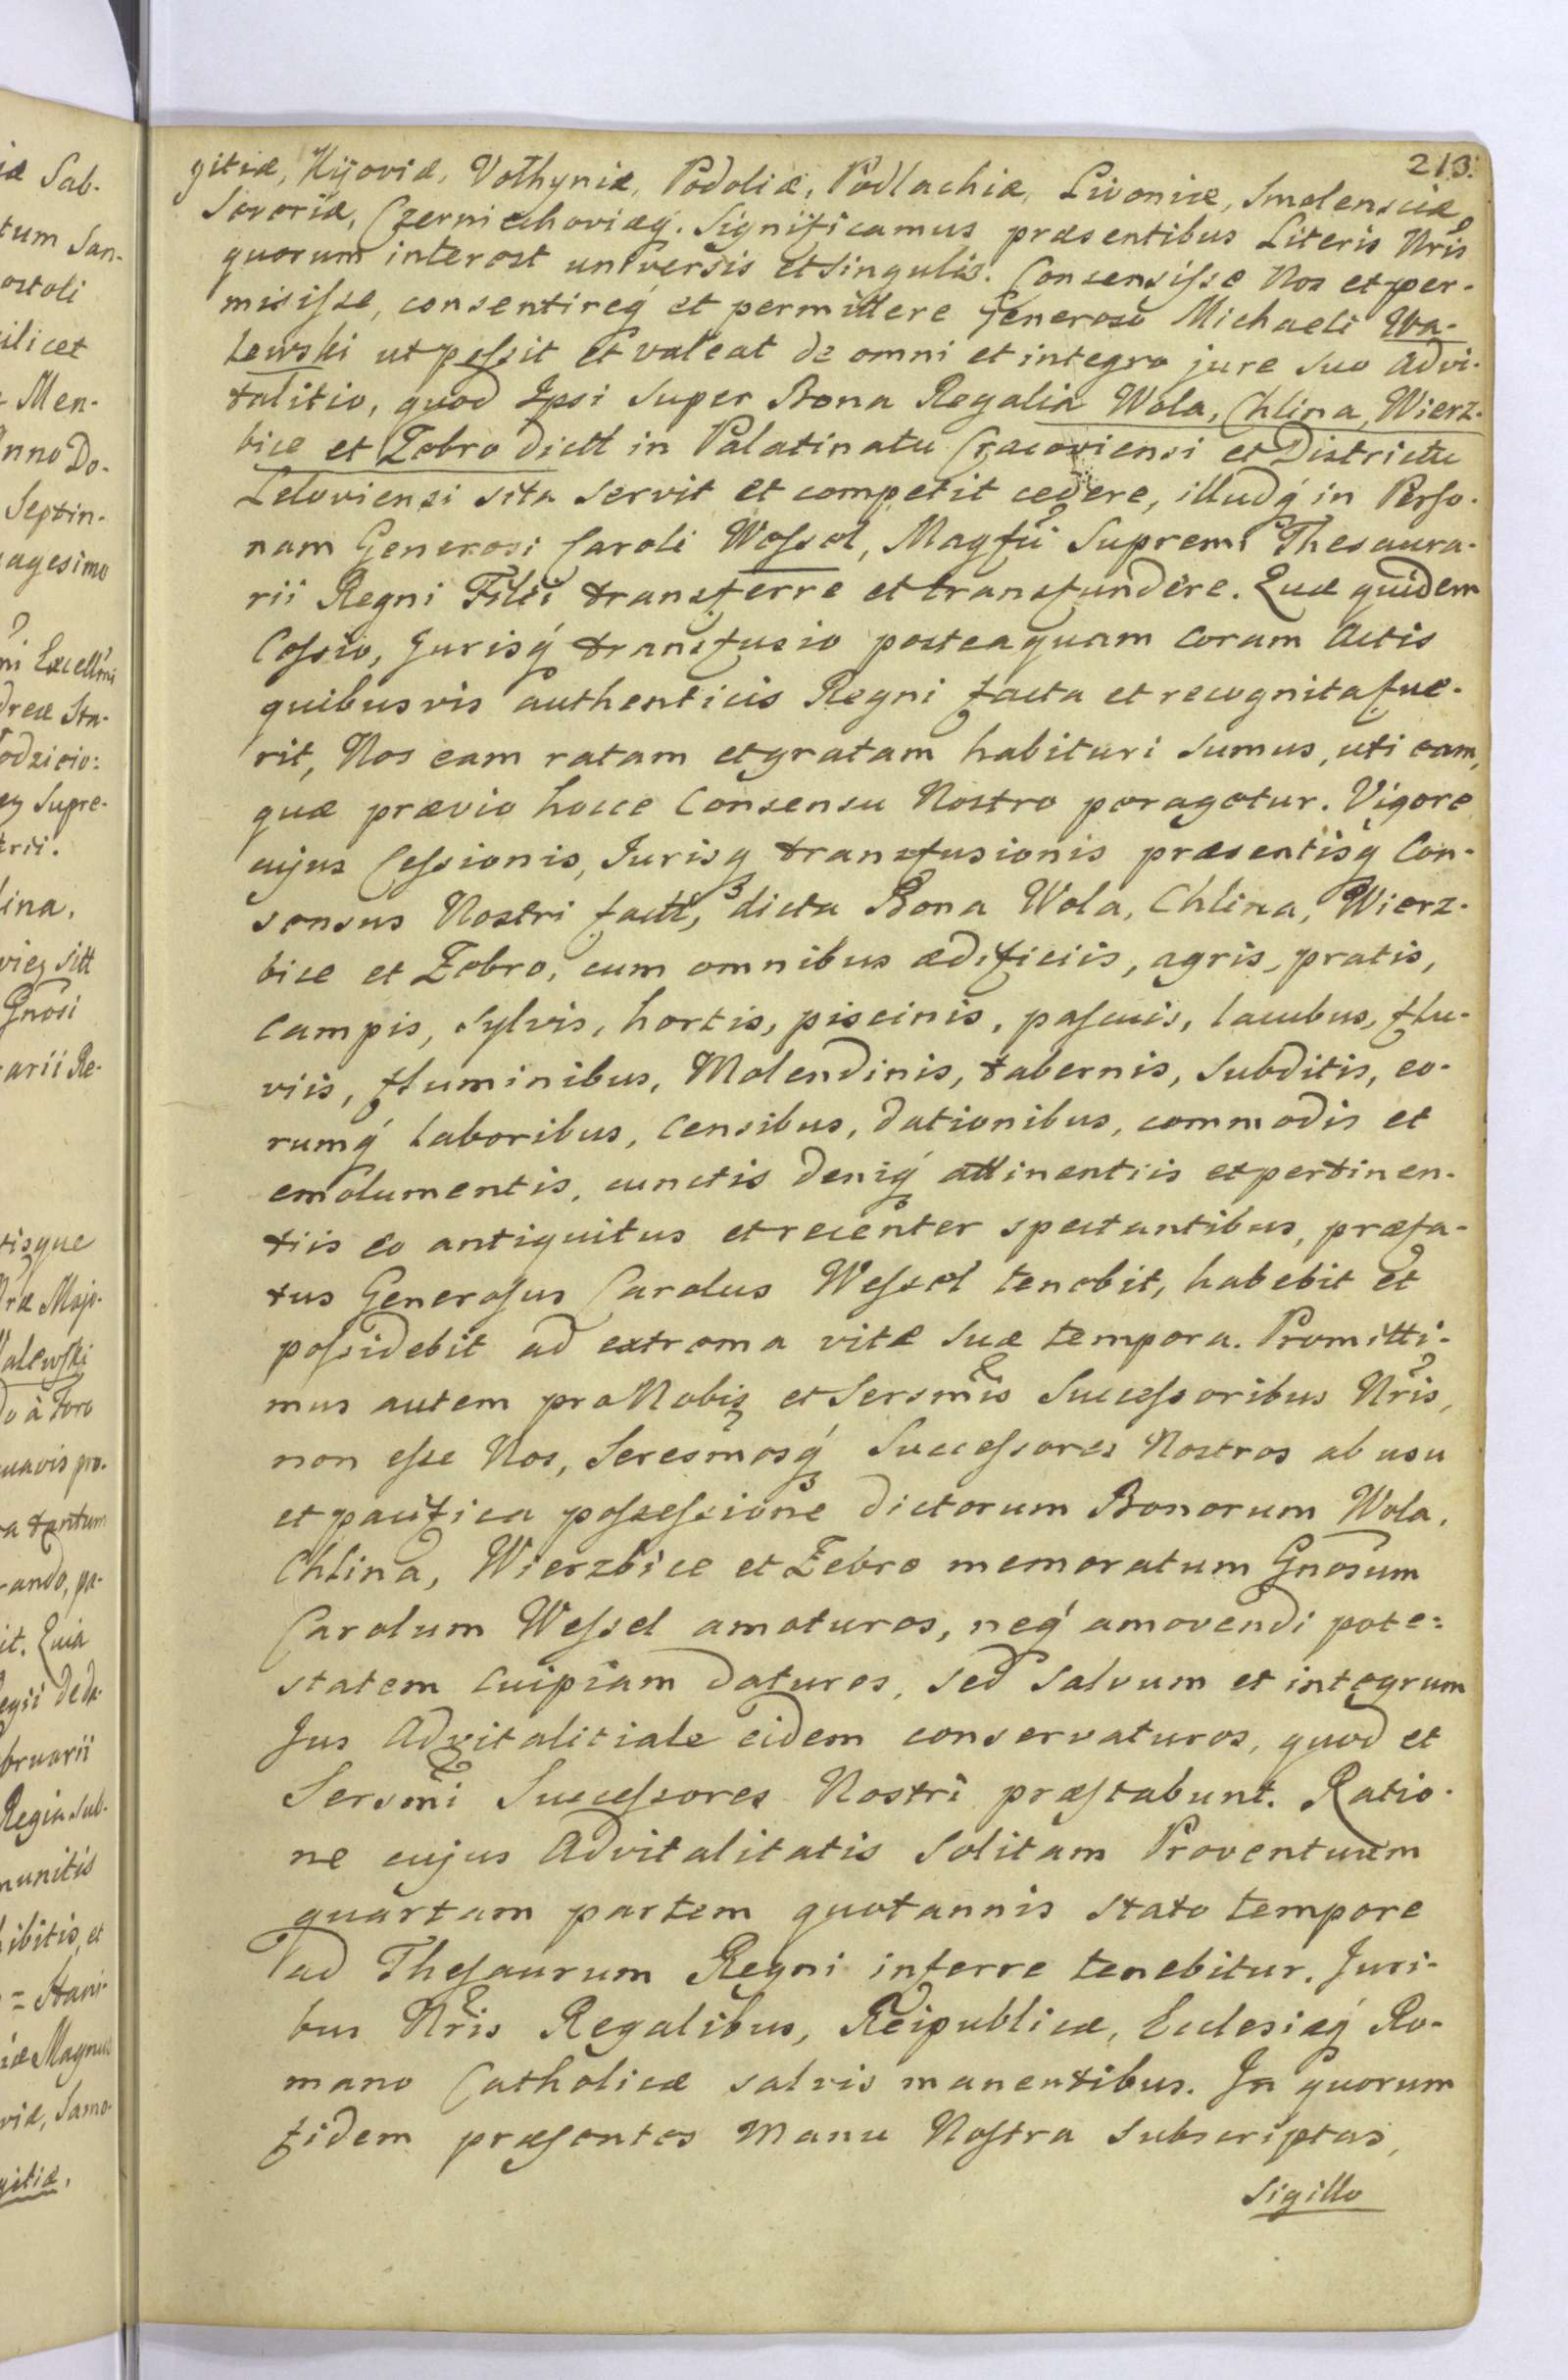 213.
gitiæ, Kijoviæ, Volhyniæ, Podoliæ, Podlachiæ, Livoniæ, Smolensciæ,
Severiæ, Czerniechoviæq́. Significamus præsentibus Literis Nris
quorum interest universis et singulis. Consensisse Nos et per-
misisse, consentireq́ et permittere Generoso Michaeli Wa-
lewski ut possit et valeat de omni et integro jure suo advi-
talitio, quod Ipsi super Bona Regalia Wola, Chlina, Wierz-
bice et Zebro dictt in Palatinatu Cracoviensi et Districtu
Leloviensi sita servit et competit cedere, illudq́ in Perso-
nam Generosi Caroli Wessel, Magfci Supremi Thesaura-
rii Regni Filii transferre et transfundere. Quæ quidem
Cessio, Jurisq́ transfusio posteaquam coram Actis
quibusvis authenticis Regni facta et recognita fue-
rit, Nos eam ratam et gratam habituri sumus, uti eam,
quæ prævio hocce Consensu Nostro peragetur. Vigore
cujus Cessionis, Jurisq transfusionis præsentisq Con-
sensus Nostri factt, dicta Bona Wola, Chlina, Wierz-
bice et Zebro, cum omnibus ædificiis, agris, pratis,
campis, sylvis, hortis, piscinis, pascuis, lacubus, flu-
viis, fluminibus, Molendinis, tabernis, subditis, eo-
rumq́ laboribus, censibus, dationibus, commodis et
emolumentis, cunctis deniq́ attinentiis et pertinen-
tiis eo antiquitus et recenter spectantibus, præfa-
tus Generosus Carolus Wessel tenebit, habebit et
possidebit ad extrema vitæ suæ tempora. Promitti-
mus autem pro Nobis et Sersmis Successoribus Nris,
non esse Nos, Seresmosq́ Successores Nostros ab usu
et pacifica possessione dictorum Bonorum Wola,
Chlina, Wierzbice et Zebro memoratum Gnosum
Carolum Wessel amoturos, neq́ amovendi pote=
statem cuipiam daturos, sed salvum et integrum
Jus Advitalitiale eidem conservaturos, quod et
Sersmi Successores Nostri præstabunt. Ratio-
ne cujus Advitalitatis solitam Proventuum
quartam partem quotannis stato tempore
ad Thesaurum Regni inferre tenebitur. Juri-
bus Nris Regalibus, Reipublicæ, Ecclesiæq́ Ro-
mano Catholicæ salvis manentibus. In quorum
fidem præsentes Manu Nostra subscriptas,
Sigillo